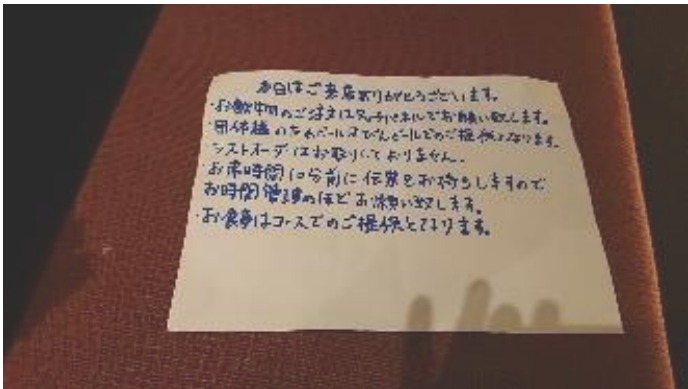 本日はご来店ありがとうございます。
・お飲み物のご注文はタッチパネルでお願い致します。
・団体様のため ビールはびんビールでのご提供となります。
ラストオーダーはお取りしておりません。
・お席時間10分前に伝票をお持ちしますので
お時間管理のほどお願い致します。
・お食事はコースでのご提供となります。